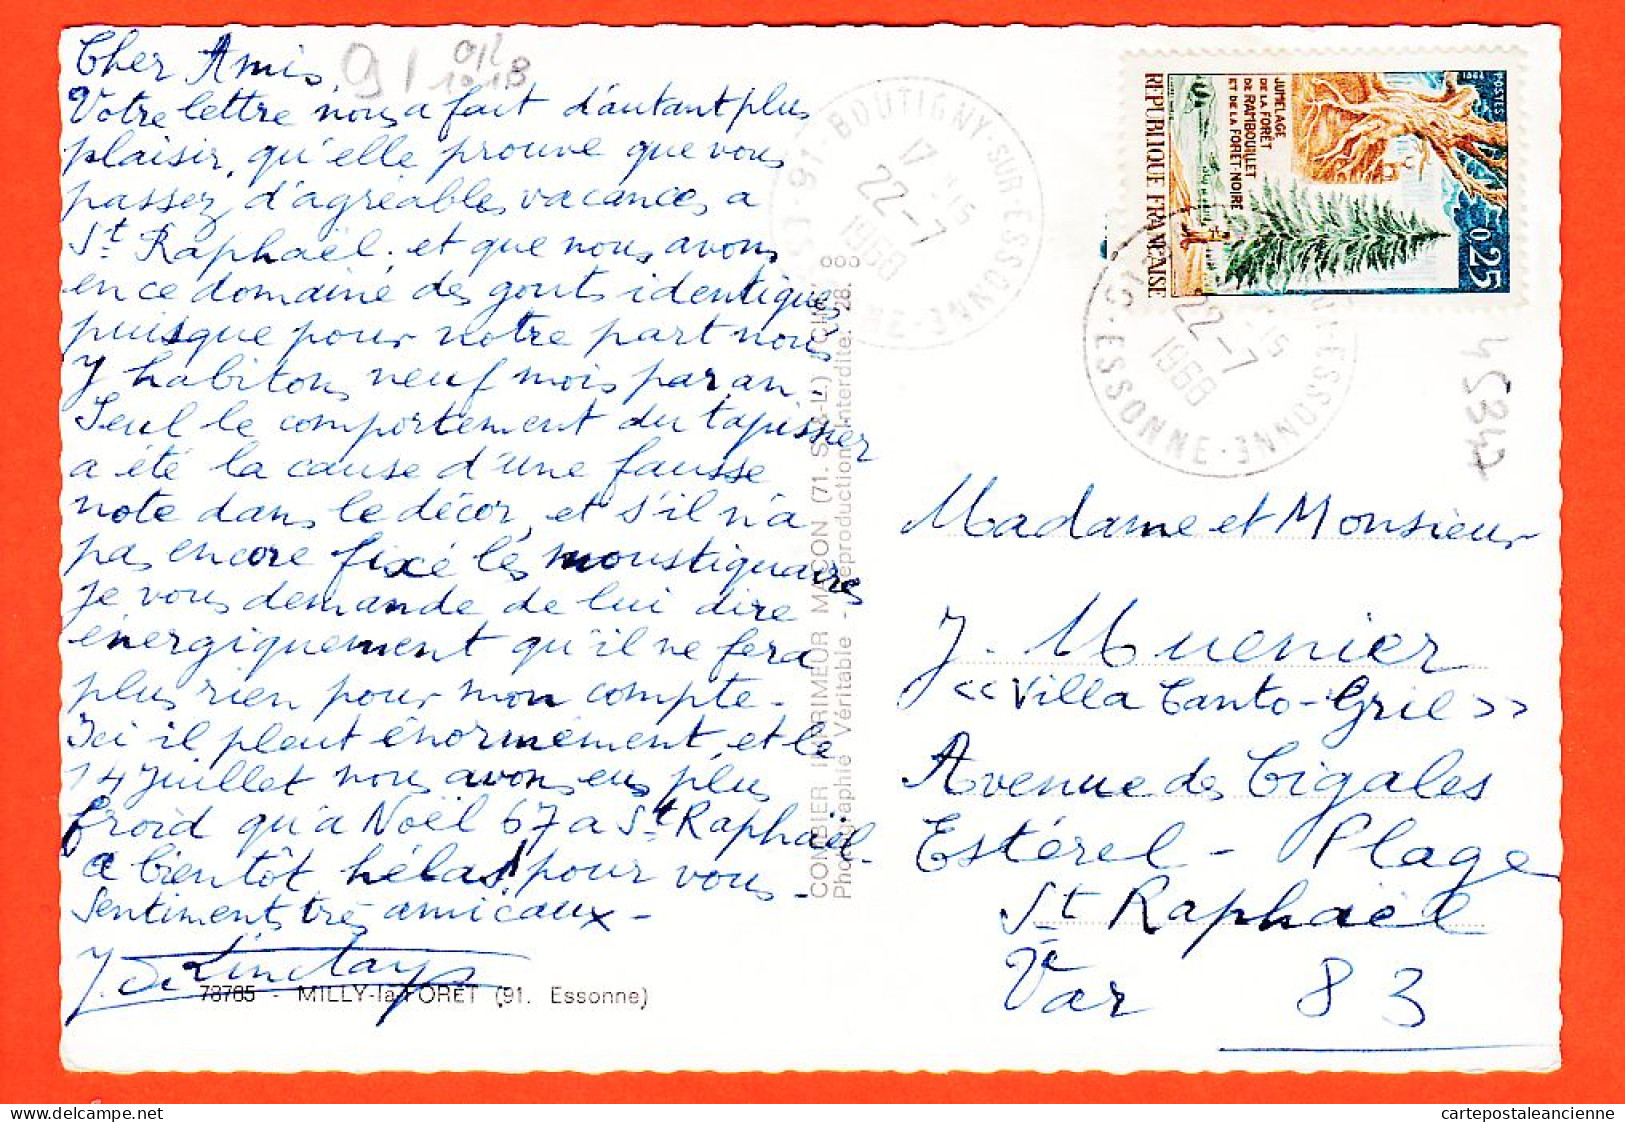 Cher Amis
91
Votre lettre nous a fait d'autant plus
plaisir, qu'elle prouve que vous
passez d'agréables vacances a
St Raphaël. et que nous avons
en ce domaine des gouts identiques
puisque pour notre part nous
y habitons neuf mois par an.
Seul le comportement du tapissier
a été la cause d'une fausse
note dans le décor, et s'il n'a
pas encore fixé les moustiquaires
je vous demande de lui dire
énergiquement qu'il ne fera
plus rien pour mon compte -
Ici il pleut énormément, et le
14 Juillet nous avons eu plus
froid qu'à Noël 67 a St Raphaël.
a bientôt hélas! pour vous -
Sentiments très amicaux -
78765 - MILLY-la-FORET (91. Essonne)
COMBIER IMPRIMEUR MACON (71. S.-&-L.)
Photographie Véritable - Reproduction Interdite. 28.
91 BOUTIGNY-SUR-ESSONNE
ESSONNE
17 H 15
22-7
1968
POSTES
1968
0,25
JUMELAGE
DE LA FORÊT
DE RAMBOUILLET
ET DE LA FORÊT-NOIRE
REPUBLIQUE FRANÇAISE
ESSONNE
22-7
1968
45347
Madame et Monsieur
J. Muenier
<<Villa Canto-Gril>>
Avenue des Cigales
Estérel - Plage
St Raphaël
Var 83
cartepostaleancienne